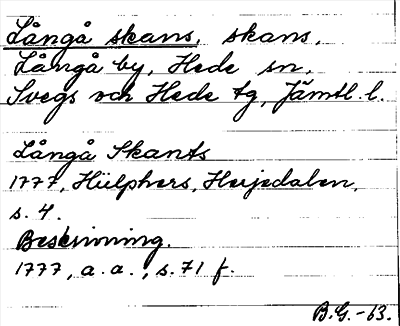 Långå skans, skans,
Långå by, Hede sn,
Svegs och Hede tg, Jämtl. l.
Långå Skants
1777, Hülphers, Herjedalen,
s. 4.
Beskrivning.
1777, a.a., s. 71 f.
B.G. -63.